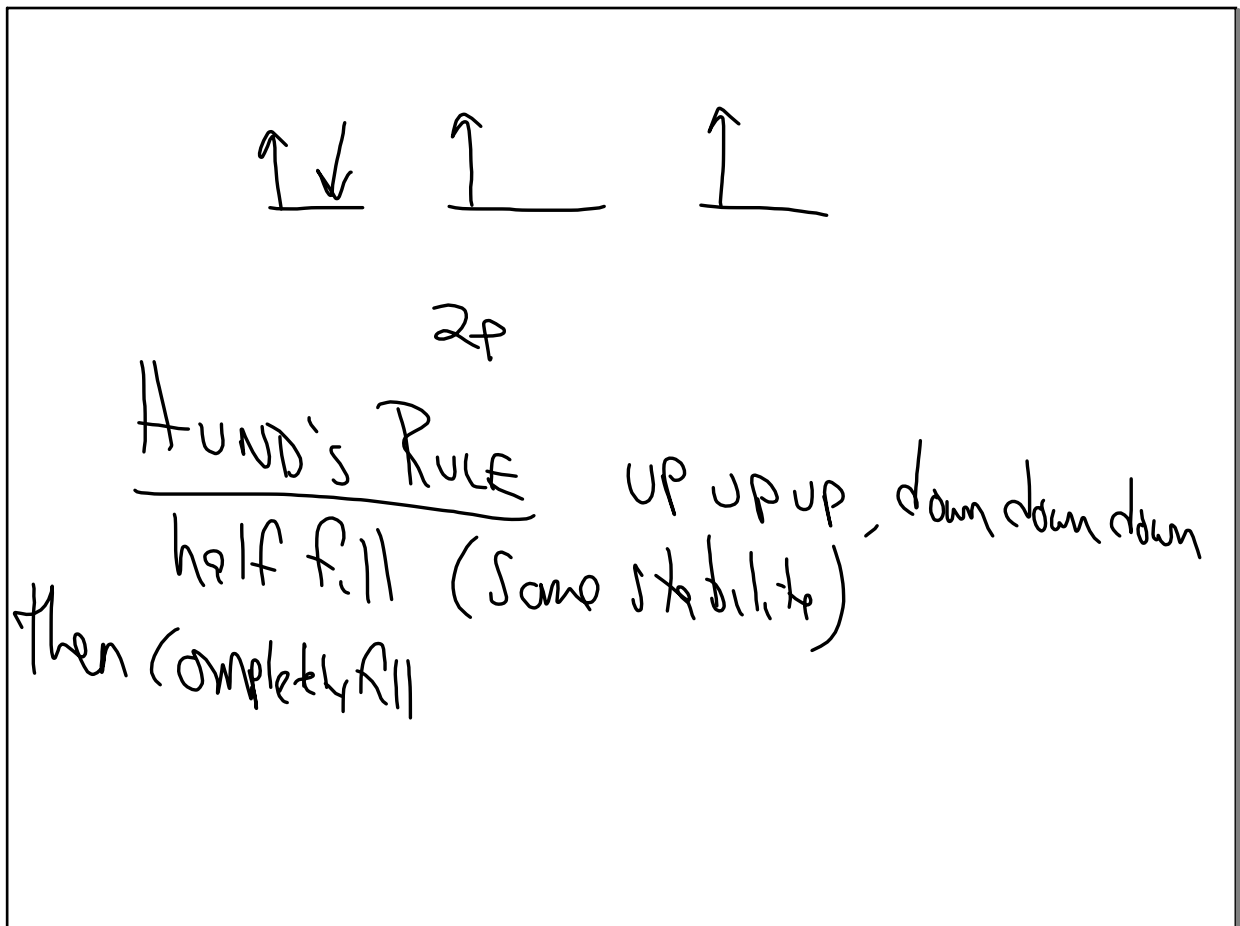 2p
HUND'S RULE up up up, down down down
half fill (some stability)
then completely fill